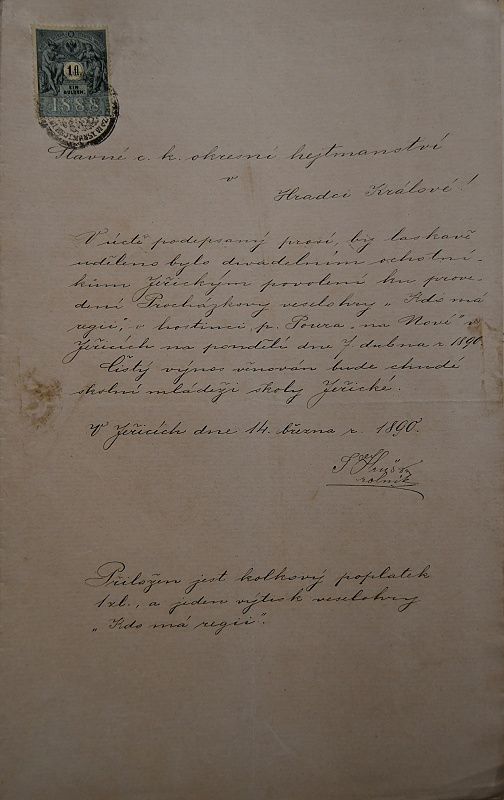 1 fl.
EIN
GULDEN.
1888
Slavné c. k. okresní hejtmanství
v
Hradci Králové!
V úctě podepsaný prosí, by laskavě
uděleno bylo divadelním ochotní-
kům Jeřickým povolení ku prove-
dení Procházkovy veselohry „Kdo má
regii", v hostinci p. Poura „na Nové" v
Jeřicích na pondělí dne 7. dubna r. 1890.
Čistý výnos věnován bude chudé
školní mládeži školy Jeřické.
V Jeřicích dne 14. března r. 1890.
rolník
Přiložen jest kolkový poplatek
1 zl., a jeden výtisk veselohry
„Kdo má regii".